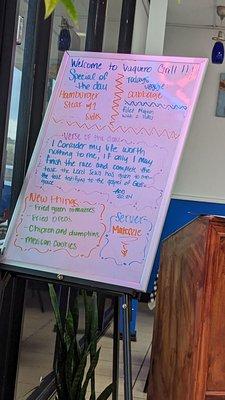 Welcome to Vaquero Grill !!!
Special of
the day
Hamburger
Steak w/
Sides
Todays
Veggie
Cabbage
Filet Mignon
with 2 sides
Verse of the day
I consider my life worth
nothing to me, if only I may
finish the race and complete the
task the Lord Jesus has given to me-
the task
to the gospel of God's
grace
New things
Fried green tomatoes
Fried oreos
Chicken and dumplins
Mexican cookies
Server